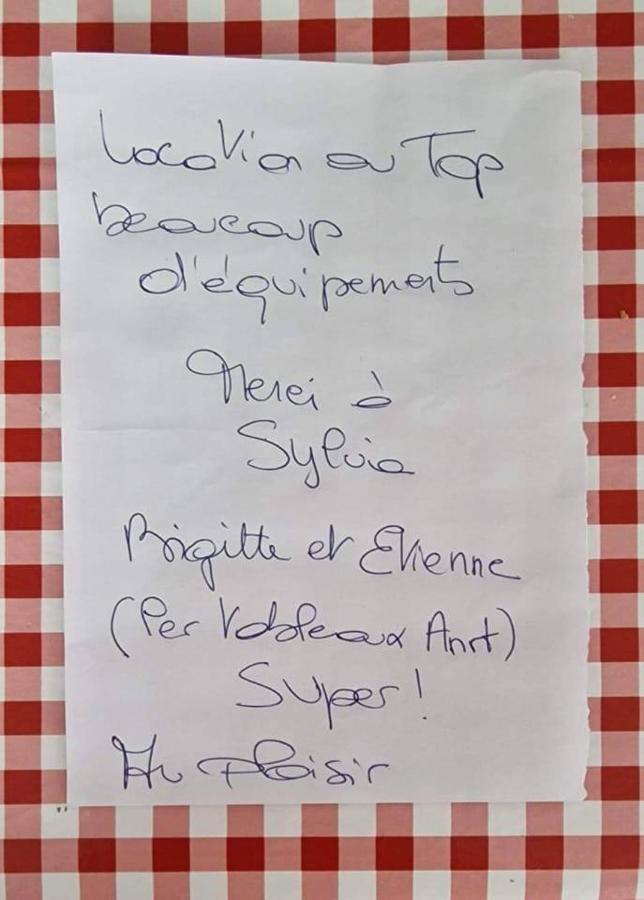 Location au Top
beaucoup
d'équipements
Merci à
Sylvia
Brigitte et Etienne
(Per Tableaux Anst)
Super !
Au Plaisir